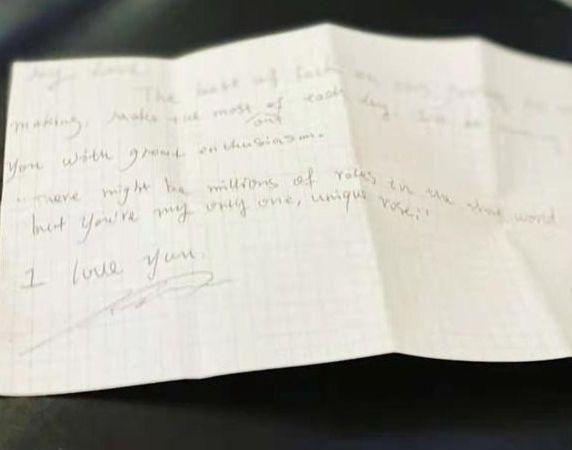 My love
The best of luck on
making. Make the most of each day.
out
You with great enthusiasm.
"There might be millions of roses in the whole world
but you're my only one, unique rose."
I love you.